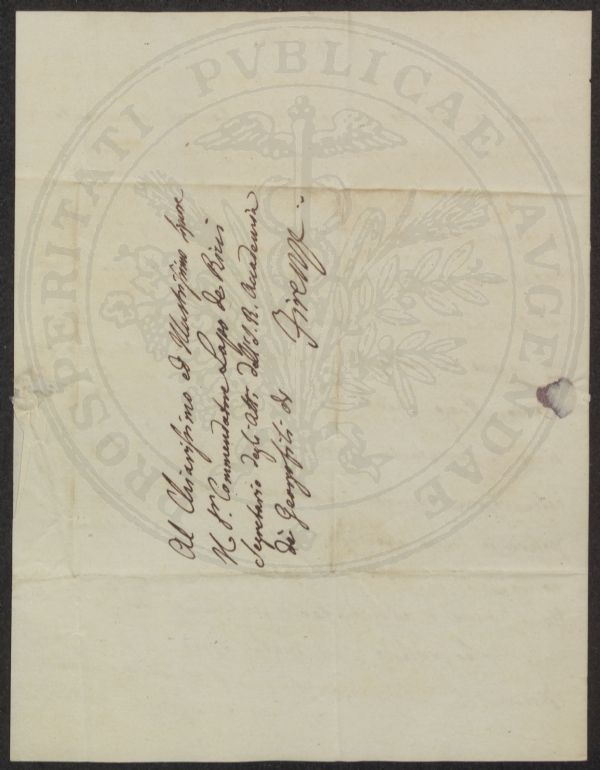 Al Chiarissimo ed Illustrissimo Sigore
Il Sr. Commendatore Lapo de Ricci
Segretario degli Atti dell'I. R. Accademia
di Georgofili di
Firenze
PROSPERITATI PVBLICAE AVGENDAE